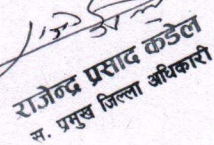 राजेन्द्र प्रसाद कंडेल
स. प्रमुख जिल्ला अधिकारी